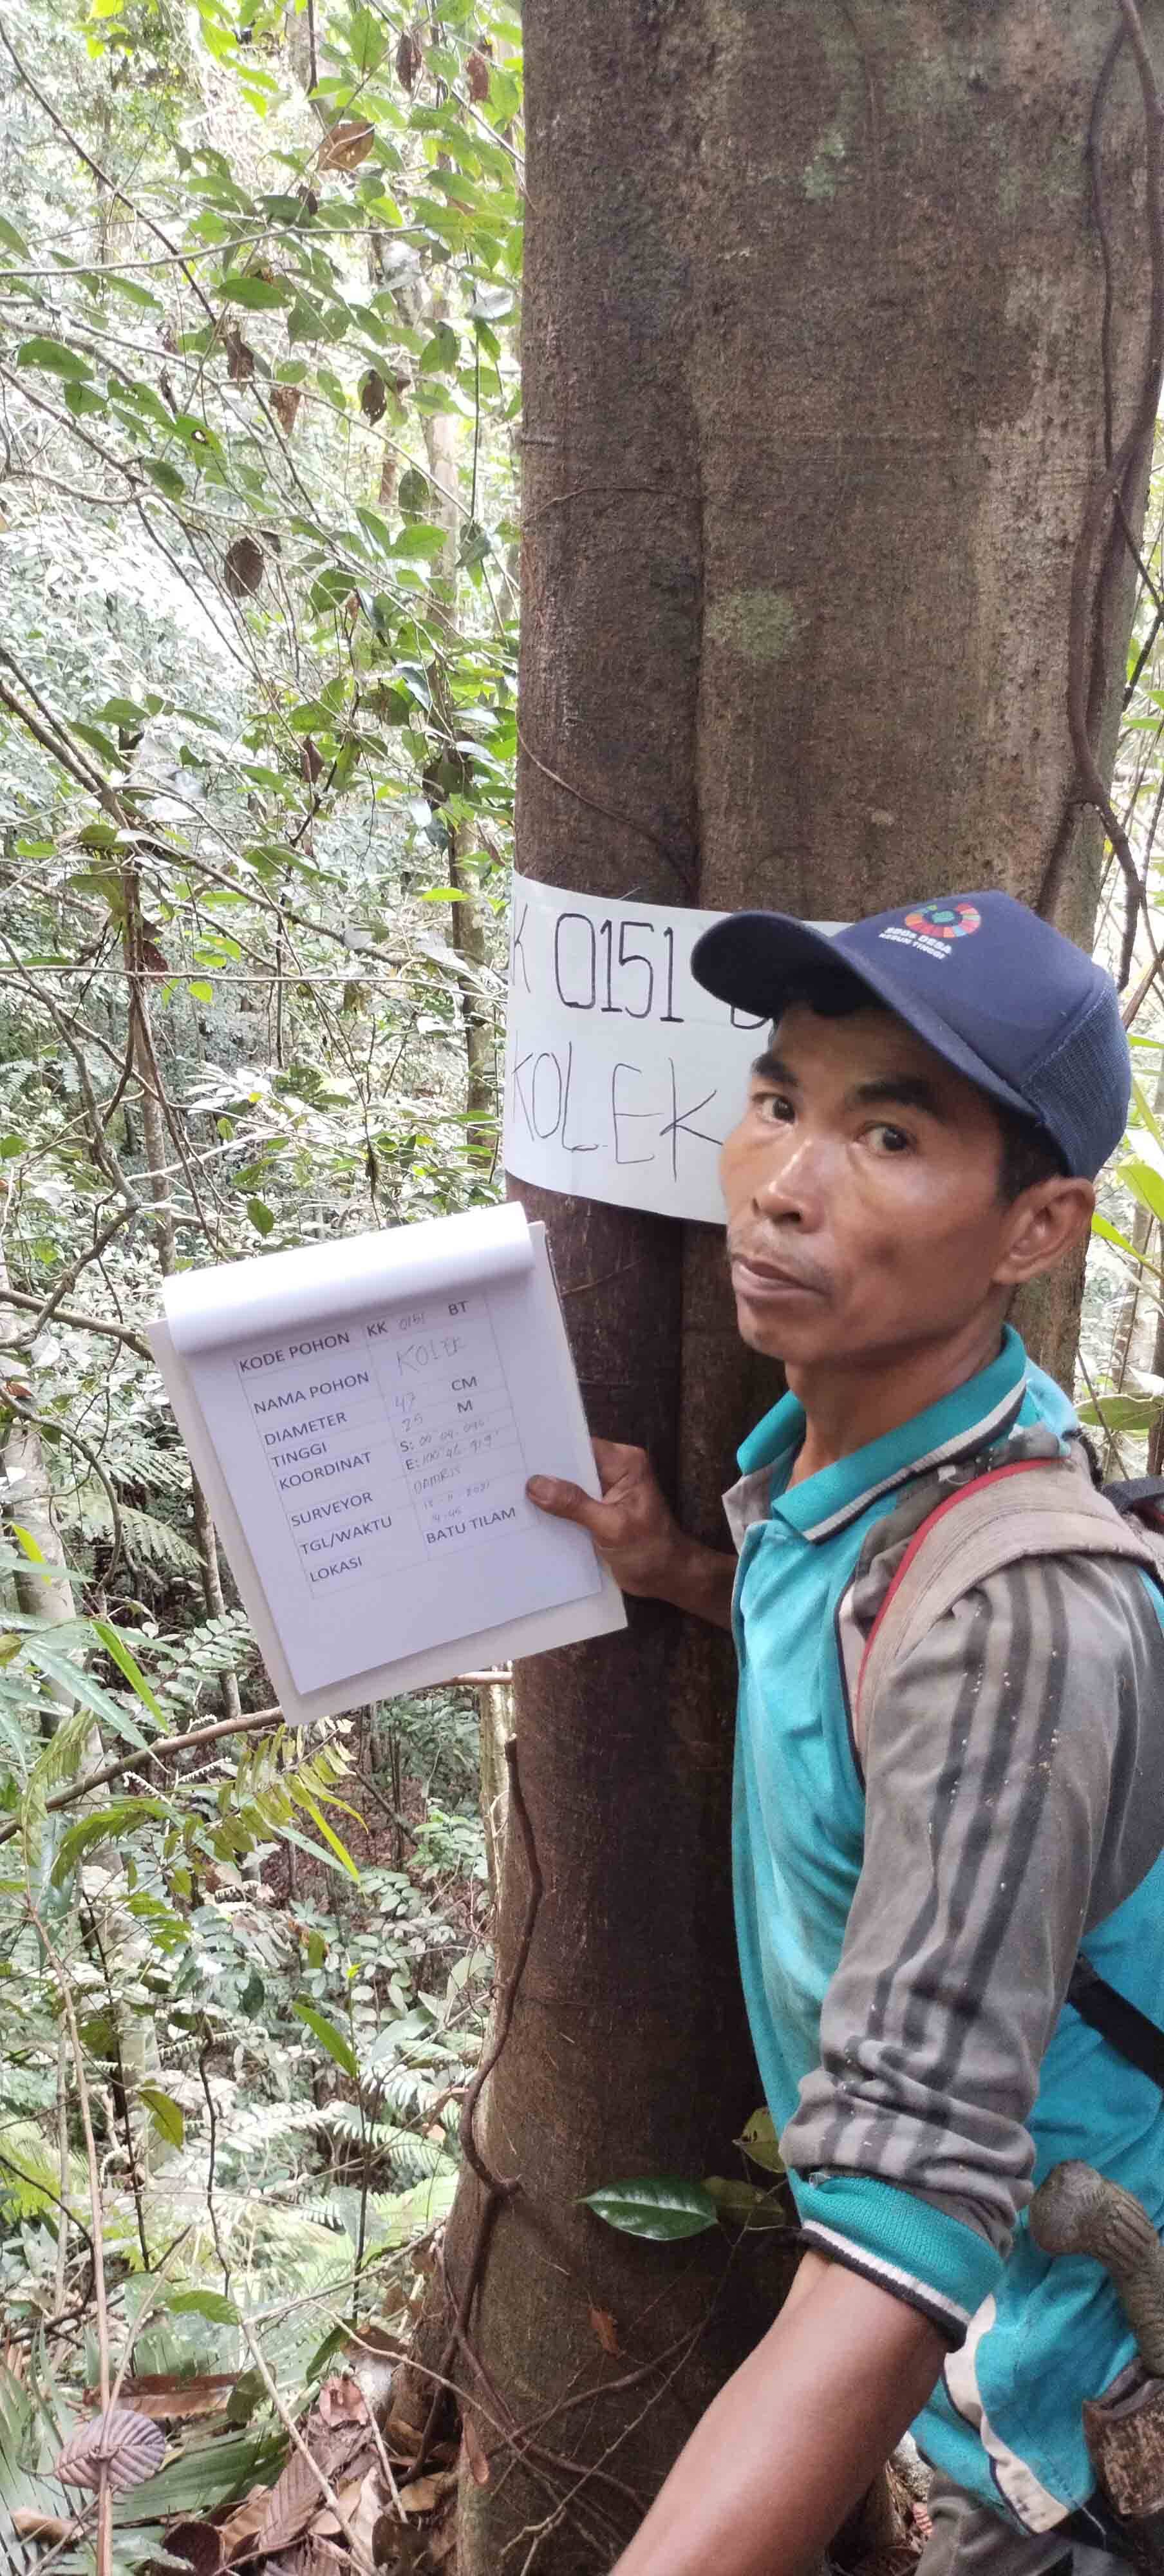 K 0151
KOLEK
SDGs DESA
KEBUN TINGGI
KODE POHON KK 0151 BT
NAMA POHON KOLEK
DIAMETER 47 CM
TINGGI 25 M
KOORDINAT S:
E:
SURVEYOR DAMRIS
TGL/WAKTU
LOKASI BATU TILAM